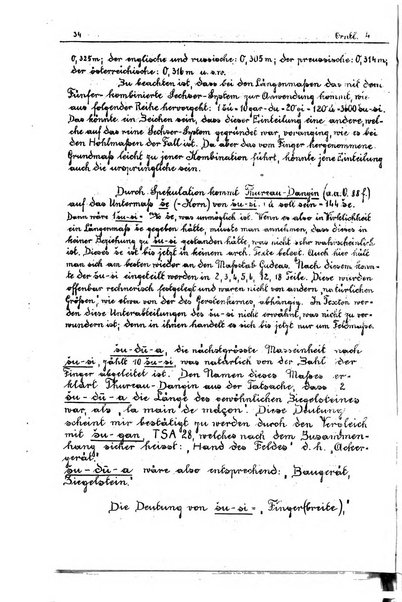 34 Orntl. 4
0,325m; der englische und russische: 0,305 m; der preussische: 0,314 m;
der österreichische: 0,316 m u.s.w.
Zu beachten ist, dass bei den Längenmaßen das mit dem
Fünfer kombinierte Sechser-System zur Anwendung kommt, wie
aus folgender Reihe hervorgeht: 1 šú - 10 gar-du - 20 ei - 120 ú = 3600 šu-si.
Das könnte ein Zeichen sein, dass dieser Einteilung eine andere, wel-
che auf das reine Sechser-System gegründet war, voranging, wie es bei
den Hohlmaßen der Fall ist. Da aber das vom Finger hergenommene
Grundmaß leicht zu jener Kombination führt, könnte jene Einteilung
auch die ursprüngliche sein.
Durch Spekulation kommt Thureau-Dangin (a.a.O. 88 f.)
auf das Untermaß še (=Korn) von šu-si. ú soll sein = 144 še.
Dann wäre šu-si = še, was unmöglich ist. Wenn es also in Wirklichkeit
ein Längenmaß še gegeben hätte, müsste man annehmen, dass dieses in
keiner Beziehung zu šu-si gestanden hätte, was nicht sehr wahrscheinlich
ist. Dieses še ist bis jetzt in keinem arch. Texte belegt. Auch hier hält
man sich am besten wieder an den Maßstab Gudeas. Nach diesem konn-
te der šu-si eingeteilt werden in 2, 3, 4, 5, 6, 12, 18 Teile. Dies wurden
offenbar rechnerisch festgelegt und waren nicht von andern „natürlichen
Größen“, wie etwa von der des Gerstenkornes, abhängig. In Texten wer-
den diese Unterabteilungen des šu-si nicht erwähnt, was nicht zu ver-
wundern ist; denn in ihnen handelt es sich bis jetzt nur um Feldmaße.
šu-dū-a, die nächstgrösste Masseinheit nach
šu-si, zählt 10 šu-si, was natürlich von der Zahl der
Finger abgeleitet ist. Den Namen dieses Maßes er-
klärt Thureau-Dangin aus der Tatsache, dass 2
šu-dū-a die Länge des gewöhnlichen Ziegelsteines
war, als „la main de maçon“. Diese Deutung
scheint mir bestätigt zu werden durch den Vergleich
mit šu-gan, TSA 28, welches nach dem Zusammen-
hang sicher heisst: „Hand des Feldes“ d.h. „Acker-
gerät“.
šu-dū-a wäre also entsprechend: „Baugerät,
Ziegelstein“.
Die Deutung von šu-si = „Finger(breite)“,